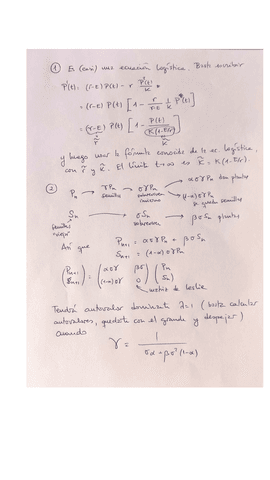 ① Es (casi) una ecuación logística. Basta escribir
P'(t) = (r-E) P(t) - r P²(t)/K =
= (r-E) P(t) [1 - r/(r-E) 1/K P(t)]
= (r-E) P(t) [1 - P(t)/K(1-E/r)]
r̃ K̃
y luego usar la fórmula conocida de la ec logística,
con r̃ y K̃. El límite t→∞ es K̃ = K(1-E/r).
② Pn → γPn → σγPn → αγσPn dan plantas
semillas sobreviven invierno (1-α)σγPn se quedan semillas
Sn → σSn → βσSn plantas
semillas "viejas" sobreviven
Así que Pn+1 = ασγPn + βσSn
Sn+1 = (1-α)σγPn
(Pn+1 Sn+1) = (ασγ βσ (1-α)σγ 0) (Pn Sn)
matriz de Leslie
Tendrá autovalor dominante λ=1 (basta calcular
autovalores, quedarte con el grande y despejar)
cuando
γ = 1 / σα+βσ²(1-α)